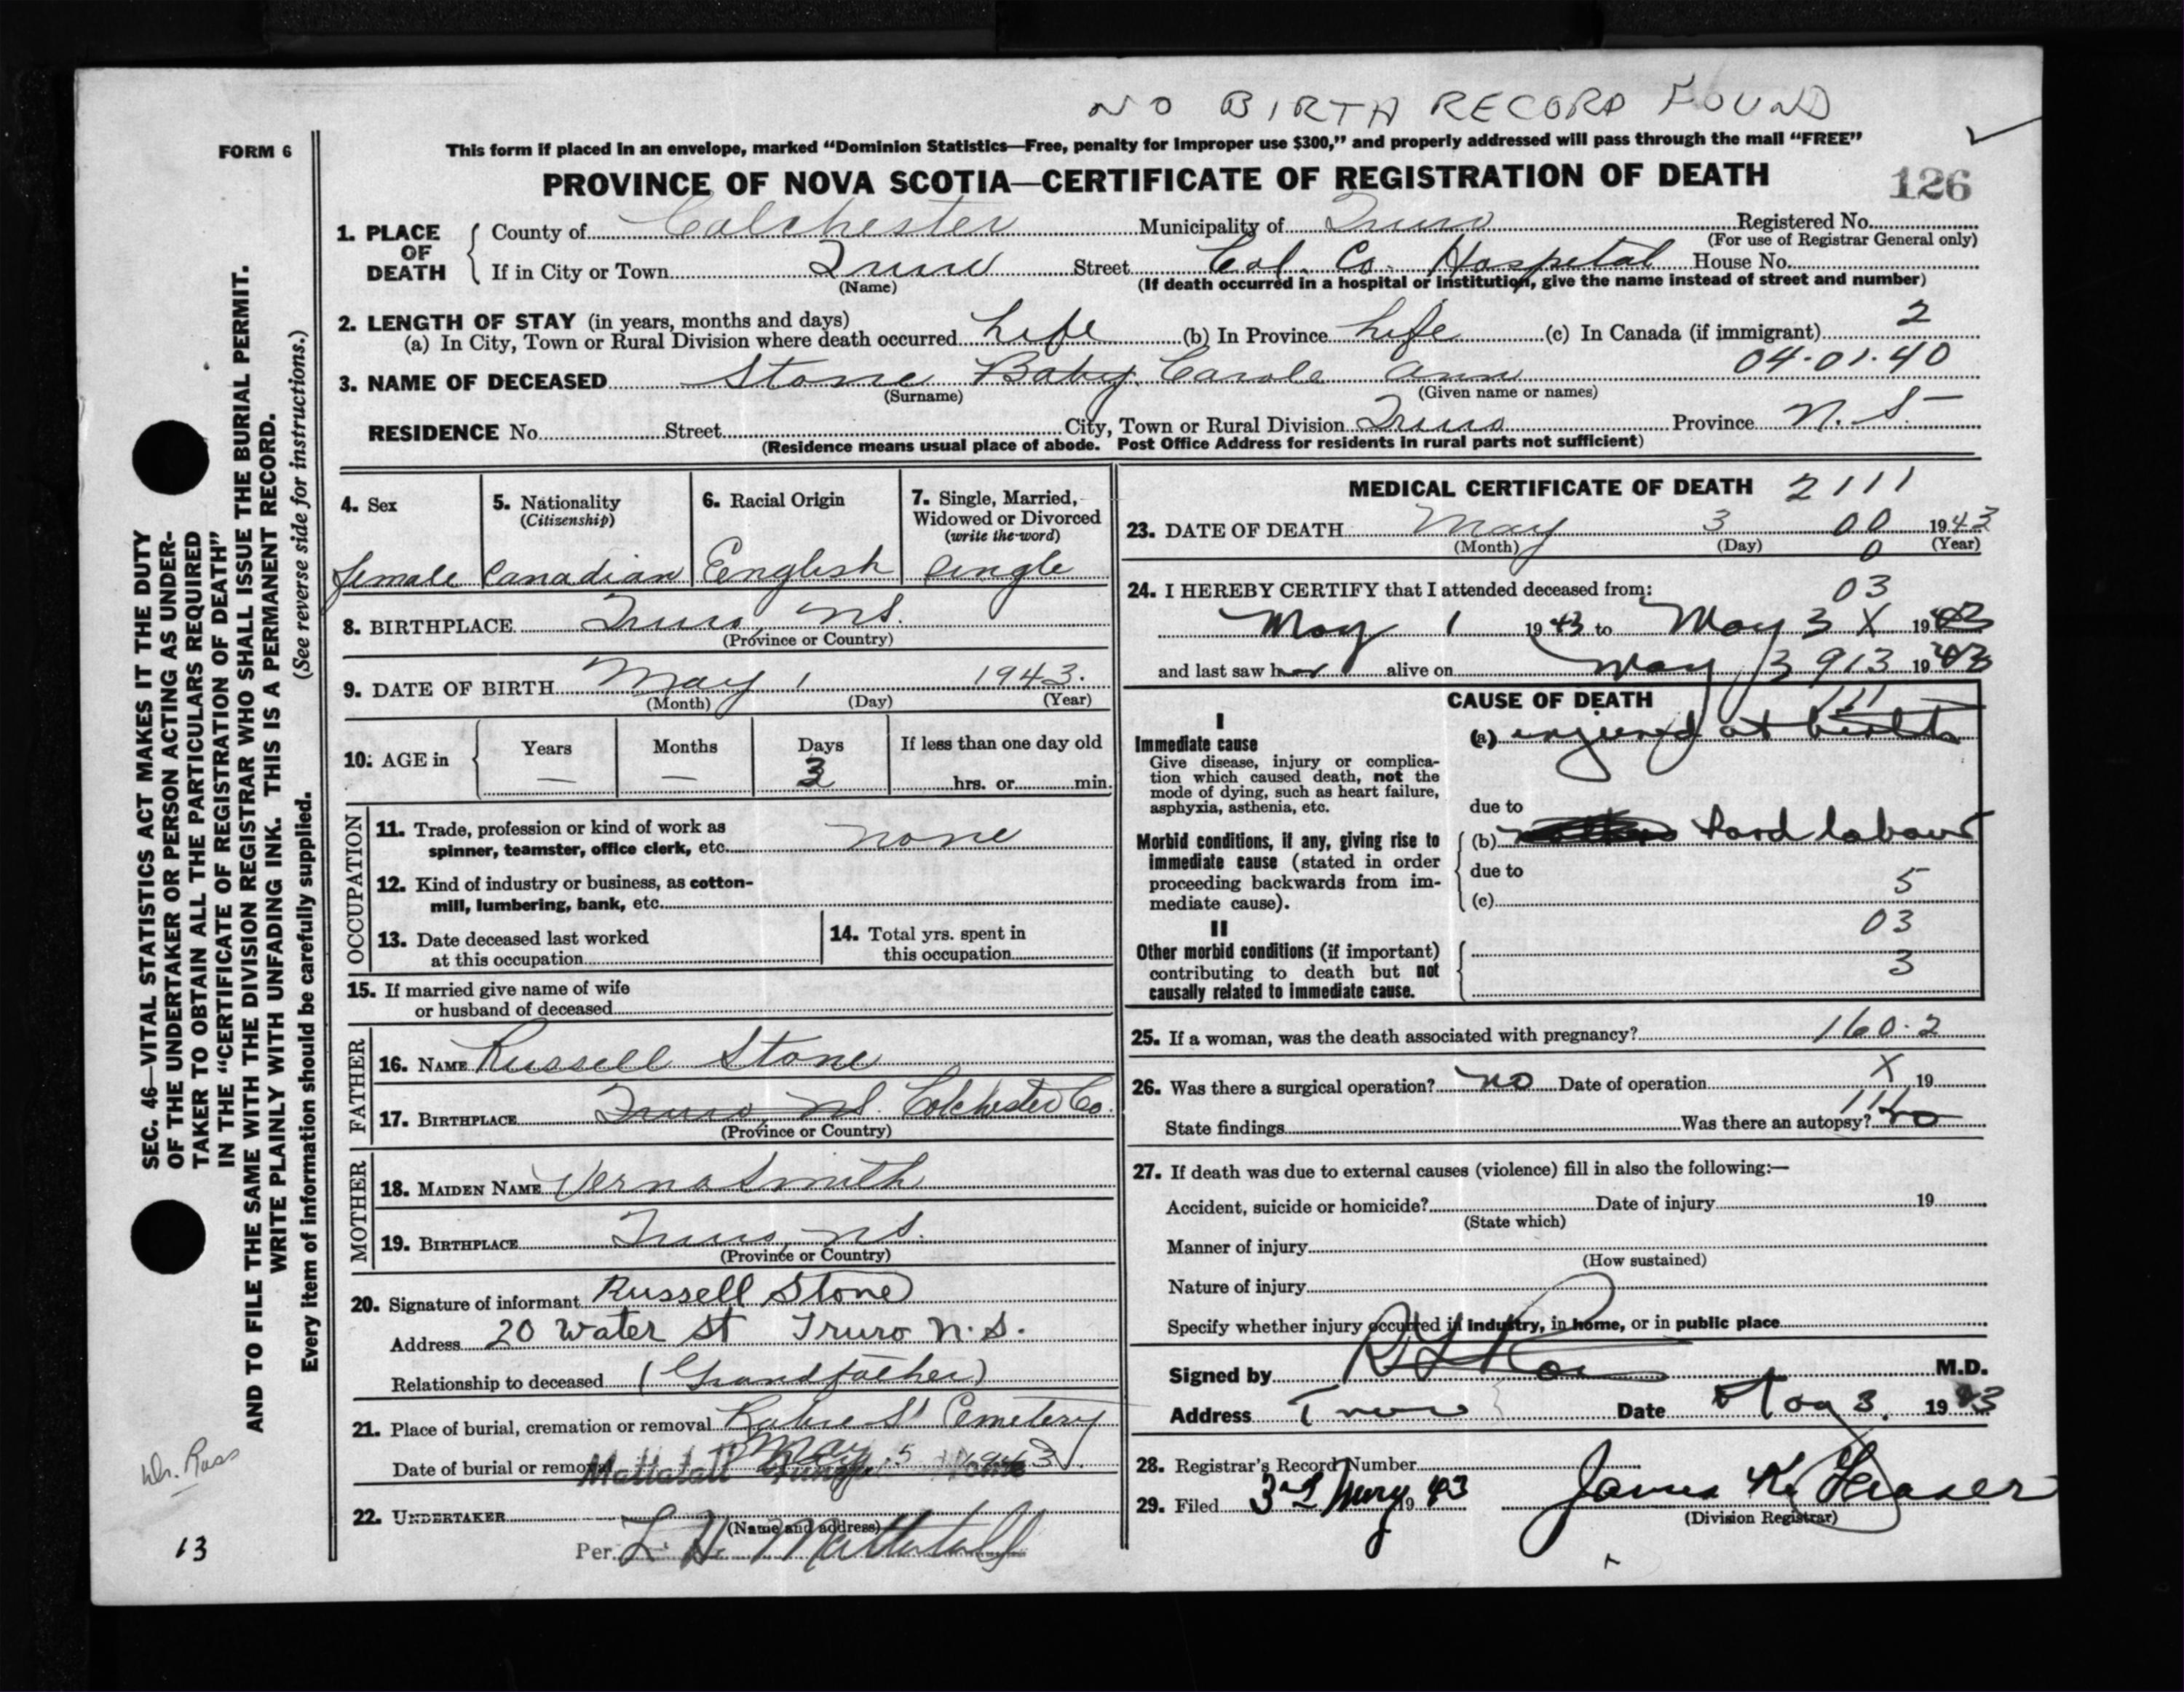 NO BIRTH RECORD FOUND
FORM 6
This form if placed in an envelope, marked “Dominion Statistics—Free, penalty for improper use $300,” and properly addressed will pass through the mail “FREE”
PROVINCE OF NOVA SCOTIA—CERTIFICATE OF REGISTRATION OF DEATH
126
1. PLACE OF DEATH
County of Colchester Municipality of Truro Registered No.
(For use of Registrar General only)
If in City or Town Truro Street Col. Co. Hospital House No.
(Name) (If death occurred in a hospital or institution, give the name instead of street and number)
2. LENGTH OF STAY (in years, months and days) 2
(a) In City, Town or Rural Division where death occurred Life (b) In Province Life (c) In Canada (if immigrant)
04-01-40
3. NAME OF DECEASED Stone Baby Carole Ann
(Surname) (Given name or names)
RESIDENCE No. Street City, Town or Rural Division Truro Province N.S.
(Residence means usual place of abode. Post Office Address for residents in rural parts not sufficient)
4. Sex
female
5. Nationality
(Citizenship)
Canadian
6. Racial Origin
English
7. Single, Married,
Widowed or Divorced
(write the word)
single
8. BIRTHPLACE Truro, NS.
(Province or Country)
9. DATE OF BIRTH May 1 1943.
(Month) (Day) (Year)
10. AGE in
Years Months Days If less than one day old
— — 3 hrs. or min.
OCCUPATION
11. Trade, profession or kind of work as
spinner, teamster, office clerk, etc. none
12. Kind of industry or business, as cotton-
mill, lumbering, bank, etc.
13. Date deceased last worked
at this occupation
14. Total yrs. spent in
this occupation
15. If married give name of wife
or husband of deceased
FATHER
16. NAME Russell Stone
17. BIRTHPLACE Truro, NS. Colchester Co.
(Province or Country)
MOTHER
18. MAIDEN NAME Verna Smith
19. BIRTHPLACE Truro, NS.
(Province or Country)
20. Signature of informant Russell Stone
Address 20 Water St Truro N.S.
Relationship to deceased (Grandfather)
21. Place of burial, cremation or removal Robie St Cemetery
Date of burial or removal May 5 1943
Mattatall Funeral Home
22. UNDERTAKER
(Name and address)
Per L. H. Mattatall
MEDICAL CERTIFICATE OF DEATH 2111
23. DATE OF DEATH May 3 00 1943
(Month) (Day) (Year)
0
24. I HEREBY CERTIFY that I attended deceased from:
03
May 1 1943 to May 3 X 1943
and last saw her alive on May 3 913 1943
CAUSE OF DEATH 111
I
Immediate cause
Give disease, injury or complica-
tion which caused death, not the
mode of dying, such as heart failure,
asphyxia, asthenia, etc.
(a) injured at birth
due to
Morbid conditions, if any, giving rise to
immediate cause (stated in order
proceeding backwards from im-
mediate cause).
(b) hard labour
due to
5
(c)
II
Other morbid conditions (if important)
contributing to death but not
causally related to immediate cause.
03
3
25. If a woman, was the death associated with pregnancy? 160.2
26. Was there a surgical operation? no Date of operation X 19
111
State findings Was there an autopsy? no
27. If death was due to external causes (violence) fill in also the following:—
Accident, suicide or homicide? Date of injury 19
(State which)
Manner of injury
(How sustained)
Nature of injury
Specify whether injury occurred in industry, in home, or in public place
Signed by M.D.
Address Truro Date May 3. 1943
28. Registrar's Record Number
29. Filed 3rd May 1943 James K. Fraser
(Division Registrar)
SEC. 46—VITAL STATISTICS ACT MAKES IT THE DUTY
OF THE UNDERTAKER OR PERSON ACTING AS UNDER-
TAKER TO OBTAIN ALL THE PARTICULARS REQUIRED
IN THE “CERTIFICATE OF REGISTRATION OF DEATH”
AND TO FILE THE SAME WITH THE DIVISION REGISTRAR WHO SHALL ISSUE THE BURIAL PERMIT.
WRITE PLAINLY WITH UNFADING INK. THIS IS A PERMANENT RECORD.
Every item of information should be carefully supplied. (See reverse side for instructions.)
Dr. Ross
13